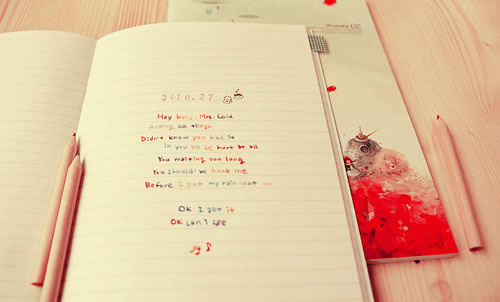 2010.27
Hey boy, Mrs. Cold
Acting so tough
Didn't know you had it
In you to be hurt at all
You waiting too long
You should've hook me
Before I put my raincoat on
OK I get it
OK can I see